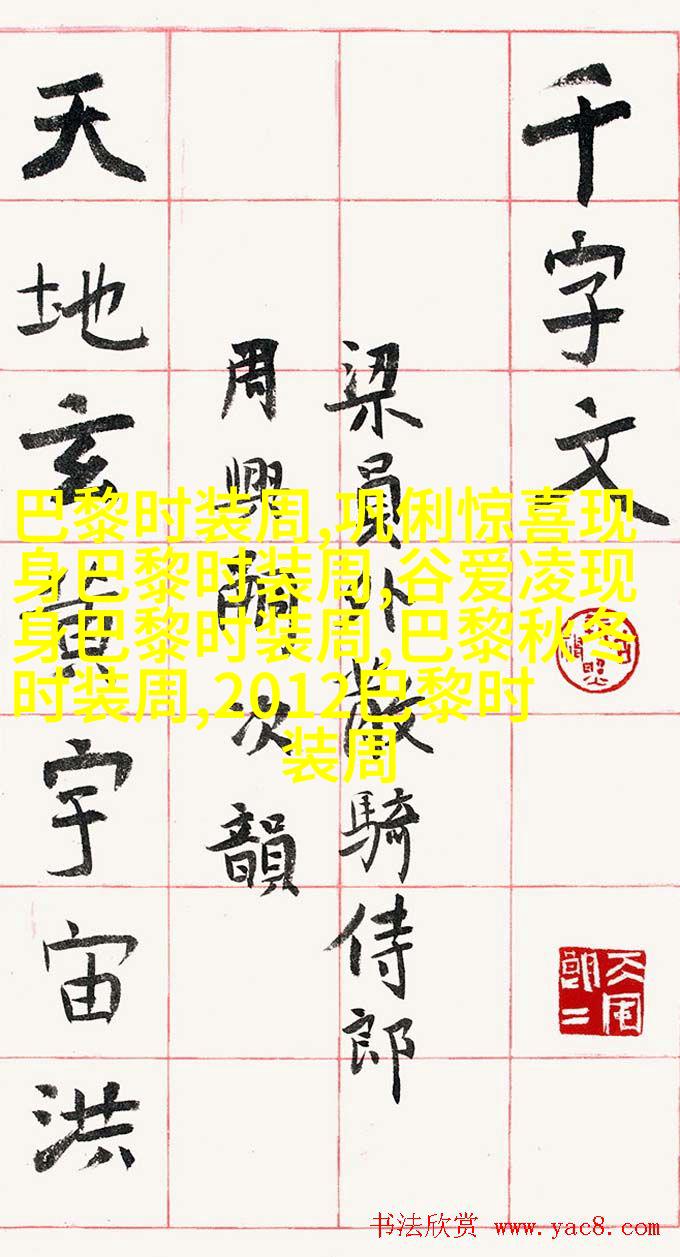 千字文
梁員外散騎侍郎
周興嗣次韻
天地玄黃宇宙洪
巴黎时装周,巩俐惊喜现
身巴黎时装周,谷爱凌现
身巴黎时装周,巴黎秋冬
时装周,2012巴黎时
装周
书法欣赏 www.yac8.com